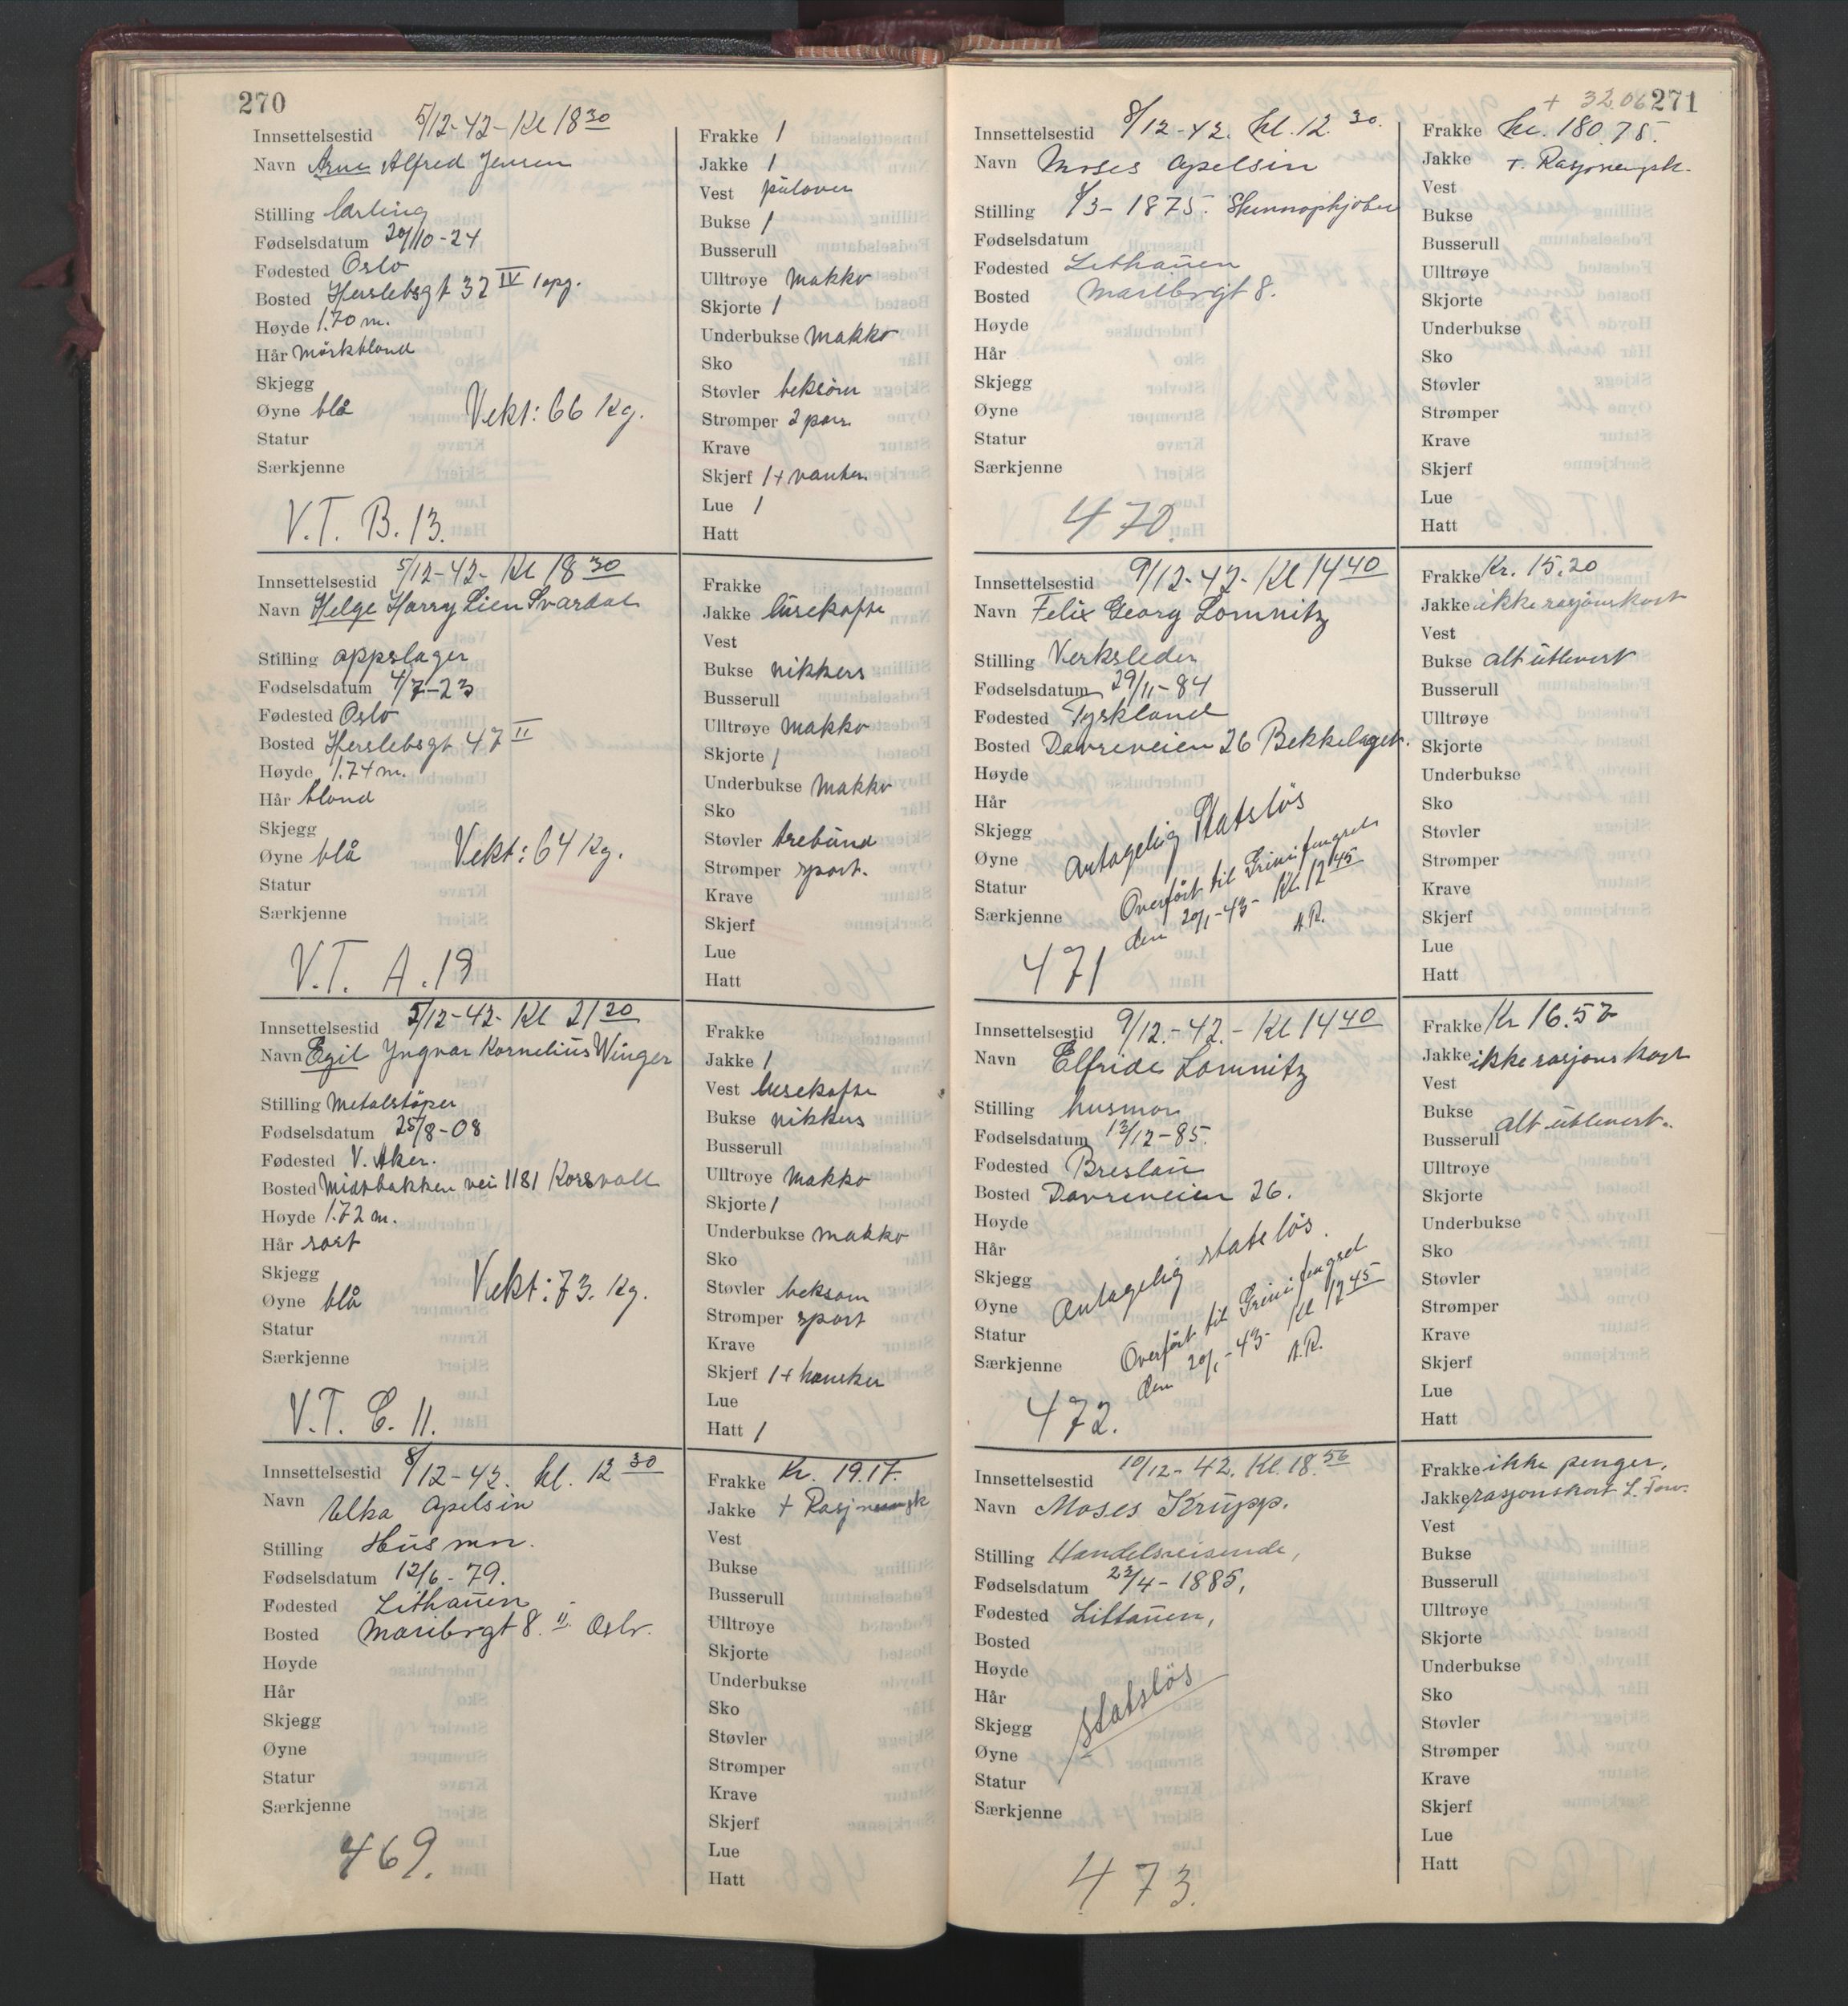 270
Innsettelsestid 5/12-42- Kl 18 30
Navn Arne Alfred Jensen
Stilling lærling
Fødselsdatum 20/10-24
Fødested Oslo
Bosted Herslebsgt 32 IV 1 opg.
Høyde 1.70 m.
Hår mörkblond
Skjegg
Øyne blå Vekt: 66 Kg.
Statur
Særkjenne
V.T. B. 13.
Frakke 1
Jakke 1
Vest pulover
Bukse 1
Busserull
Ulltrøye Makko
Skjorte 1
Underbukse Makko
Sko
Støvler beksöm
Strømper 2 par
Krave
Skjerf 1 + vanter
Lue 1
Hatt
Innsettelsestid 5/12-42- Kl 18 30
Navn Helge Harry Lien Svardal
Stilling oppslager
Fødselsdatum 4/7-23
Fødested Oslo
Bosted Herslebsgt 47 II
Høyde 1.74 m.
Hår blond
Skjegg
Øyne blå Vekt: 64 Kg.
Statur
Særkjenne
V.T. A. 19
Frakke
Jakke lusekofte
Vest
Bukse nikkers
Busserull
Ulltrøye Makko
Skjorte 1
Underbukse Makko
Sko
Støvler trebund
Strømper sport.
Krave
Skjerf
Lue
Hatt
Innsettelsestid 5/12-42- Kl 21 20
Navn Egil Yngvar Kornelius Winger
Stilling Metalstöper
Fødselsdatum 25/8-08
Fødested V. Aker.
Bosted Midtbakken vei 1181 Korsvoll
Høyde 1.72 m.
Hår sort
Skjegg
Øyne blå Vekt: 73. Kg.
Statur
Særkjenne
V.T. C. 11.
Frakke
Jakke 1
Vest lusekofte
Bukse nikkers
Busserull
Ulltrøye Makko
Skjorte 1
Underbukse Makko
Sko
Støvler beksom
Strømper sport
Krave
Skjerf 1 + hansker
Lue
Hatt 1
Innsettelsestid 8/12-42. kl. 12 30
Navn Elka Apelsin
Stilling Husmor.
Fødselsdatum 12/6-79.
Fødested Lithauen
Bosted Maribogt 8. II Oslo.
Høyde
Hår
Skjegg
Øyne
Statur
Særkjenne
469.
Frakke Kr. 19.17.
Jakke +
Vest
Bukse
Busserull
Ulltrøye
Skjorte
Underbukse
Sko
Støvler
Strømper
Krave
Skjerf
Lue
Hatt
+ 32.06 271
Innsettelsestid 8/12-42. kl. 12. 30.
Navn Moses Apelsin
Stilling 8/3-1875.
Fødselsdatum
Fødested Lithauen
Bosted Maribogt 8.
Høyde
Hår
Skjegg
Øyne
Statur
Særkjenne
470.
Frakke kr. 180.75.
Jakke +
Vest
Bukse
Busserull
Ulltrøye
Skjorte
Underbukse
Sko
Støvler
Strømper
Krave
Skjerf
Lue
Hatt
Innsettelsestid 9/12-42- Kl 14 40
Navn Felix Georg Lomnitz
Stilling Verksleder
Fødselsdatum 29/11-84
Fødested Tyskland
Bosted Davreveien 26 Bekkelaget.
Høyde
Hår
Skjegg
Øyne
Statur
Særkjenne
Antagelig Statslös
Overfört til Grini fengsel
den 20/1-43- Kl. 12 45
A.R.
471
Frakke Kr. 15.20
Jakke ikke rasjonskort
Vest
Bukse alt utlevert
Busserull
Ulltrøye
Skjorte
Underbukse
Sko
Støvler
Strømper
Krave
Skjerf
Lue
Hatt
Innsettelsestid 9/12.-42.- Kl 14 40
Navn Elfride Lomnitz
Stilling husmor
Fødselsdatum 13/12-85.
Fødested Breslau
Bosted Davreveien 26.
Høyde
Hår
Skjegg
Øyne
Statur
Særkjenne
Antagelig statslös.
Overfört til Grini fengsel
den 20/1-43- Kl 12 45
A.R.
472.
Frakke Kr 16.57
Jakke ikke rasjonskort
Vest
Bukse
Busserull alt utlevert.
Ulltrøye
Skjorte
Underbukse
Sko
Støvler
Strømper
Krave
Skjerf
Lue
Hatt
Innsettelsestid 10/12-42. Kl. 18. 56
Navn Moses Krupp.
Stilling Handelsreisende,
Fødselsdatum 23/4-1885,
Fødested Littauen,
Bosted
Høyde
Hår
Skjegg
Øyne
Statur
Særkjenne
Statslös
473.
Frakke ikke penger,
Jakke rasjonskort
Vest
Bukse
Busserull
Ulltrøye
Skjorte
Underbukse
Sko
Støvler
Strømper
Krave
Skjerf
Lue
Hatt